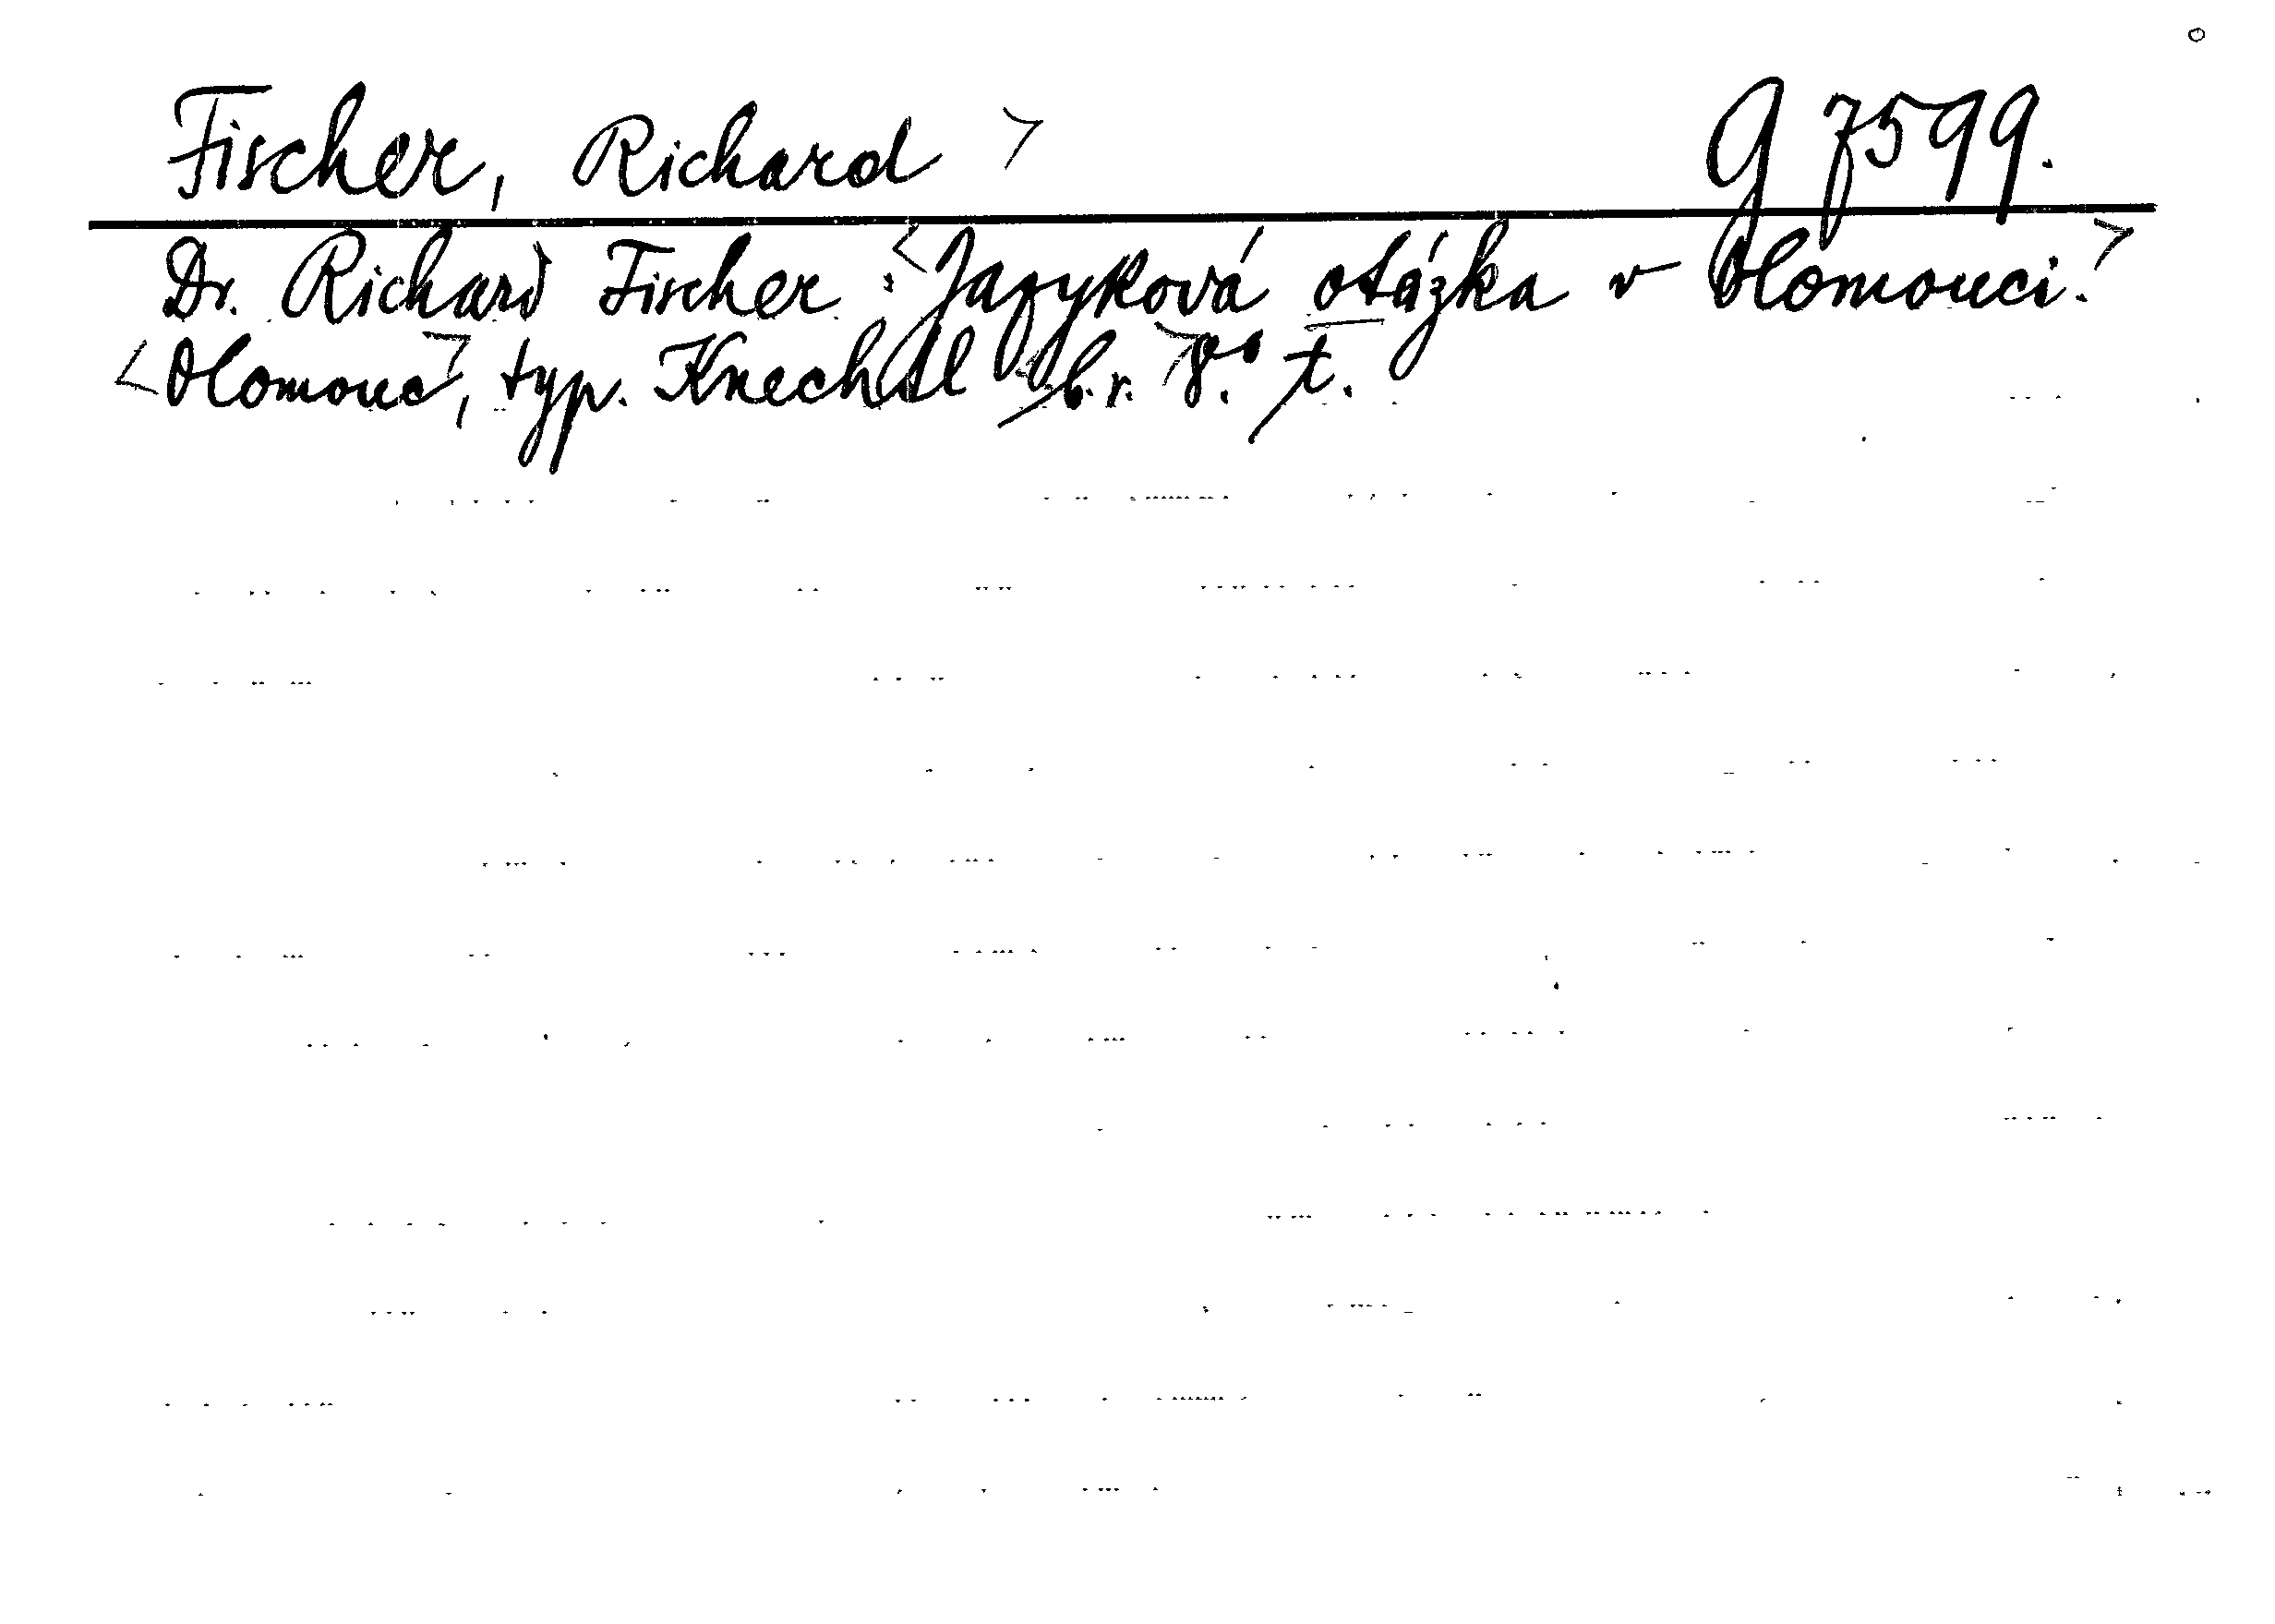 Fischer, Richard > g 7599.
Dr. Richard Fischer: <Jazyková otázka v Olomouci.>
<Olomouc>, typ. Knechtl b.r. 8.° t.